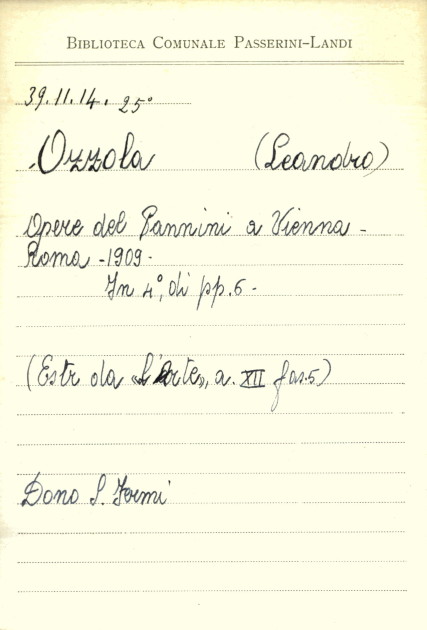 BIBLIOTECA COMUNALE PASSERINI-LANDI
39.11.14. 25°
Ozzola (Leandro)
Opere del Pannini a Vienna -
Roma - 1909 -
In 4°, di pp. 6 -
(Estr da «L'Arte», a. XII fas. 5)
Dono S. Fermi